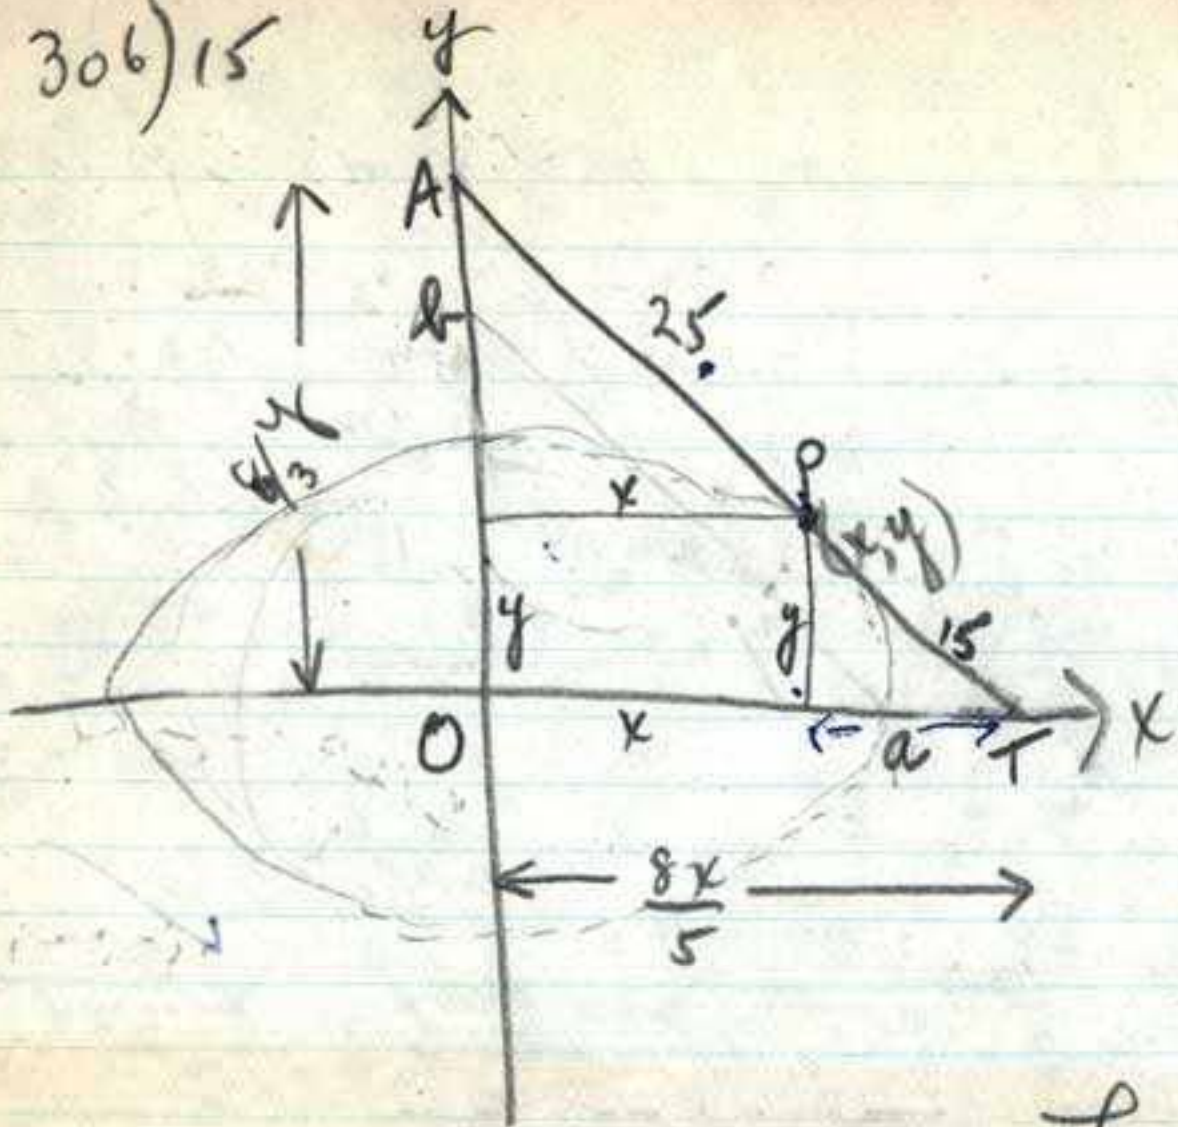 306) 15
y
A
b
25
8/3 y
x
P
(x, y)
y
y
15
O
x
a
T
X
8x
5